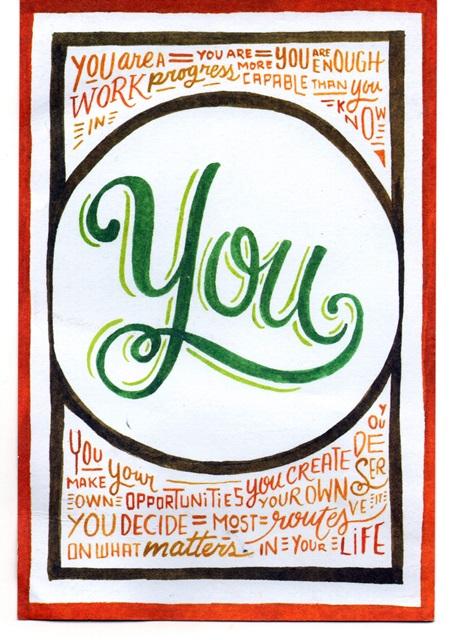 YOU are A
WORK IN progress
YOU ARE
MORE
CAPABLE THAN you
KNOW
YOU ARE
ENOUGH
You
You
MAKE your
OWN OPPORTUNITIES
YOU DECIDE MOST
ON WHAT matters.
you CREATE
YOUR OWN
routes
IN YOUR LIFE
YOU
DE
SER
VE IT